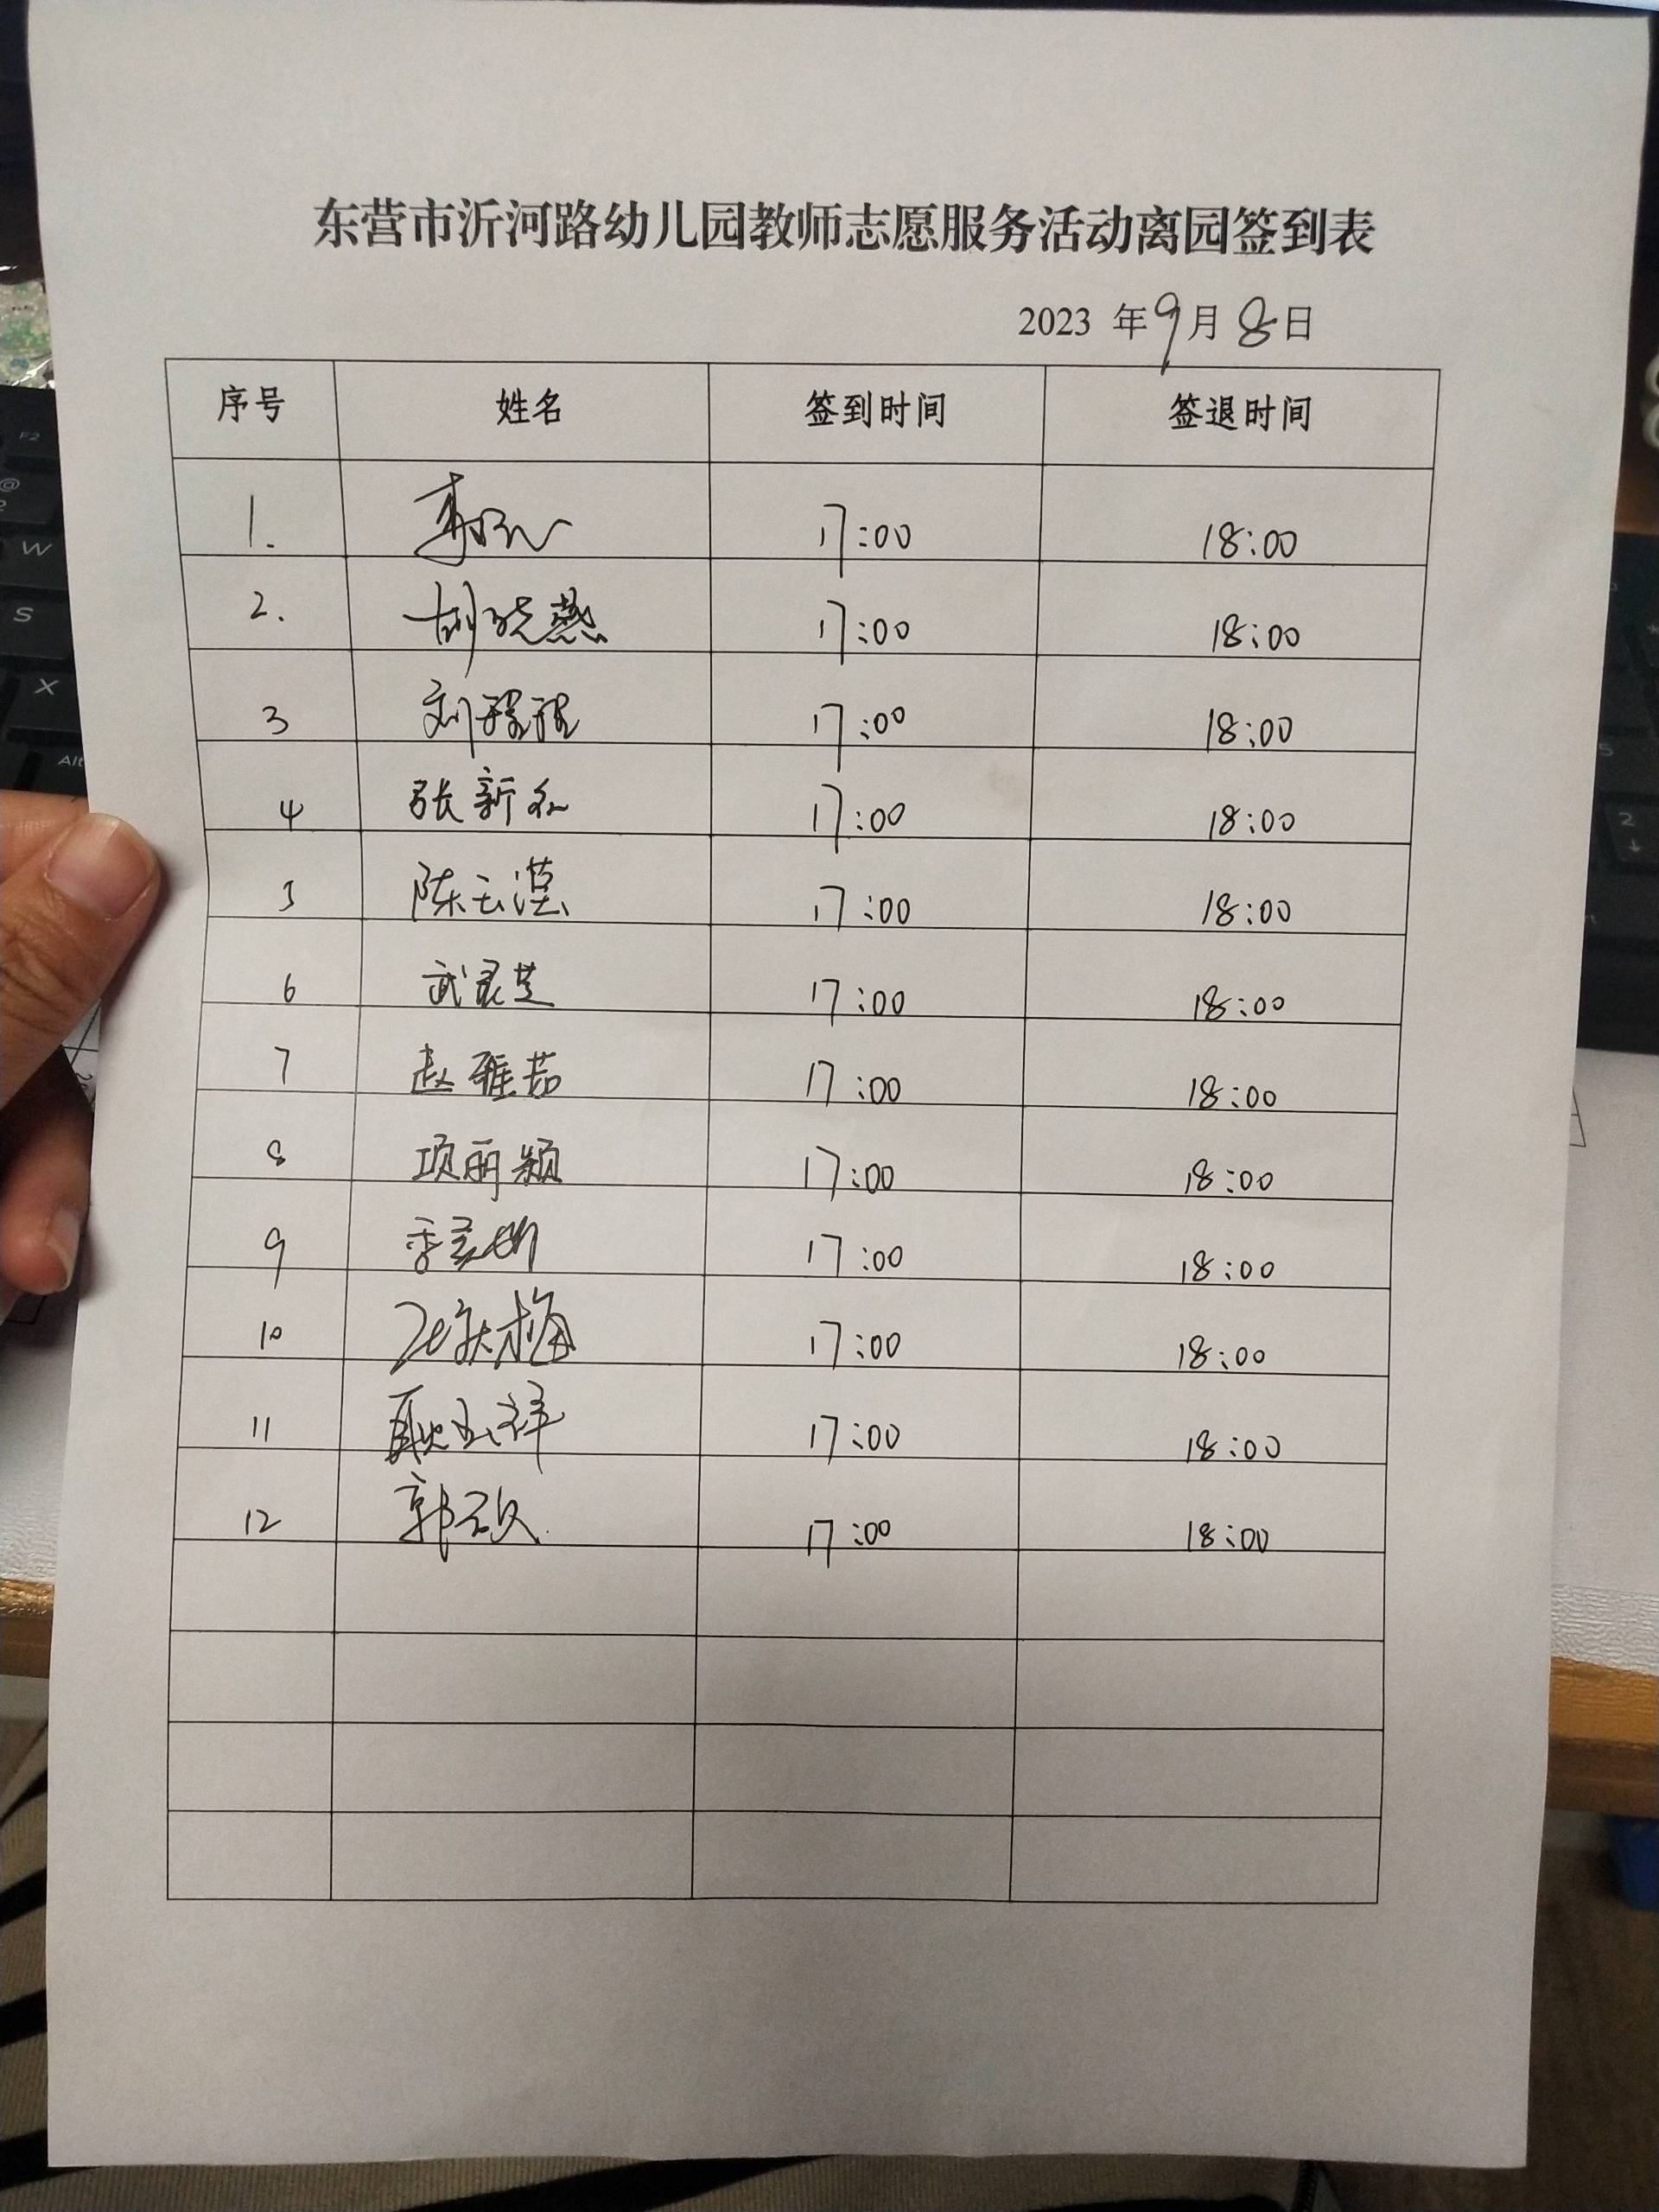 东营市沂河路幼儿园教师志愿服务活动离园签到表
2023 年9月8日
序号 姓名 签到时间 签退时间
1. 17:00 18:00
2. 胡晓燕 17:00 18:00
3 刘程程 17:00 18:00
4 张新红 17:00 18:00
5 陈云漠 17:00 18:00
6 武灵芝 17:00 18:00
7 赵雅茹 17:00 18:00
8 项丽颖 17:00 18:00
9 17:00 18:00
10 17:00 18:00
11 17:00 18:00
12 郭欣 17:00 18:00